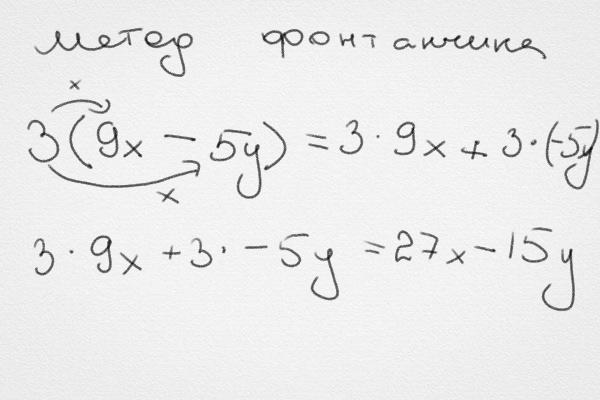 метод фонтанчика
x
3(9x - 5y) = 3 · 9x + 3 · (-5y)
x
3 · 9x + 3 · - 5y = 27x - 15y